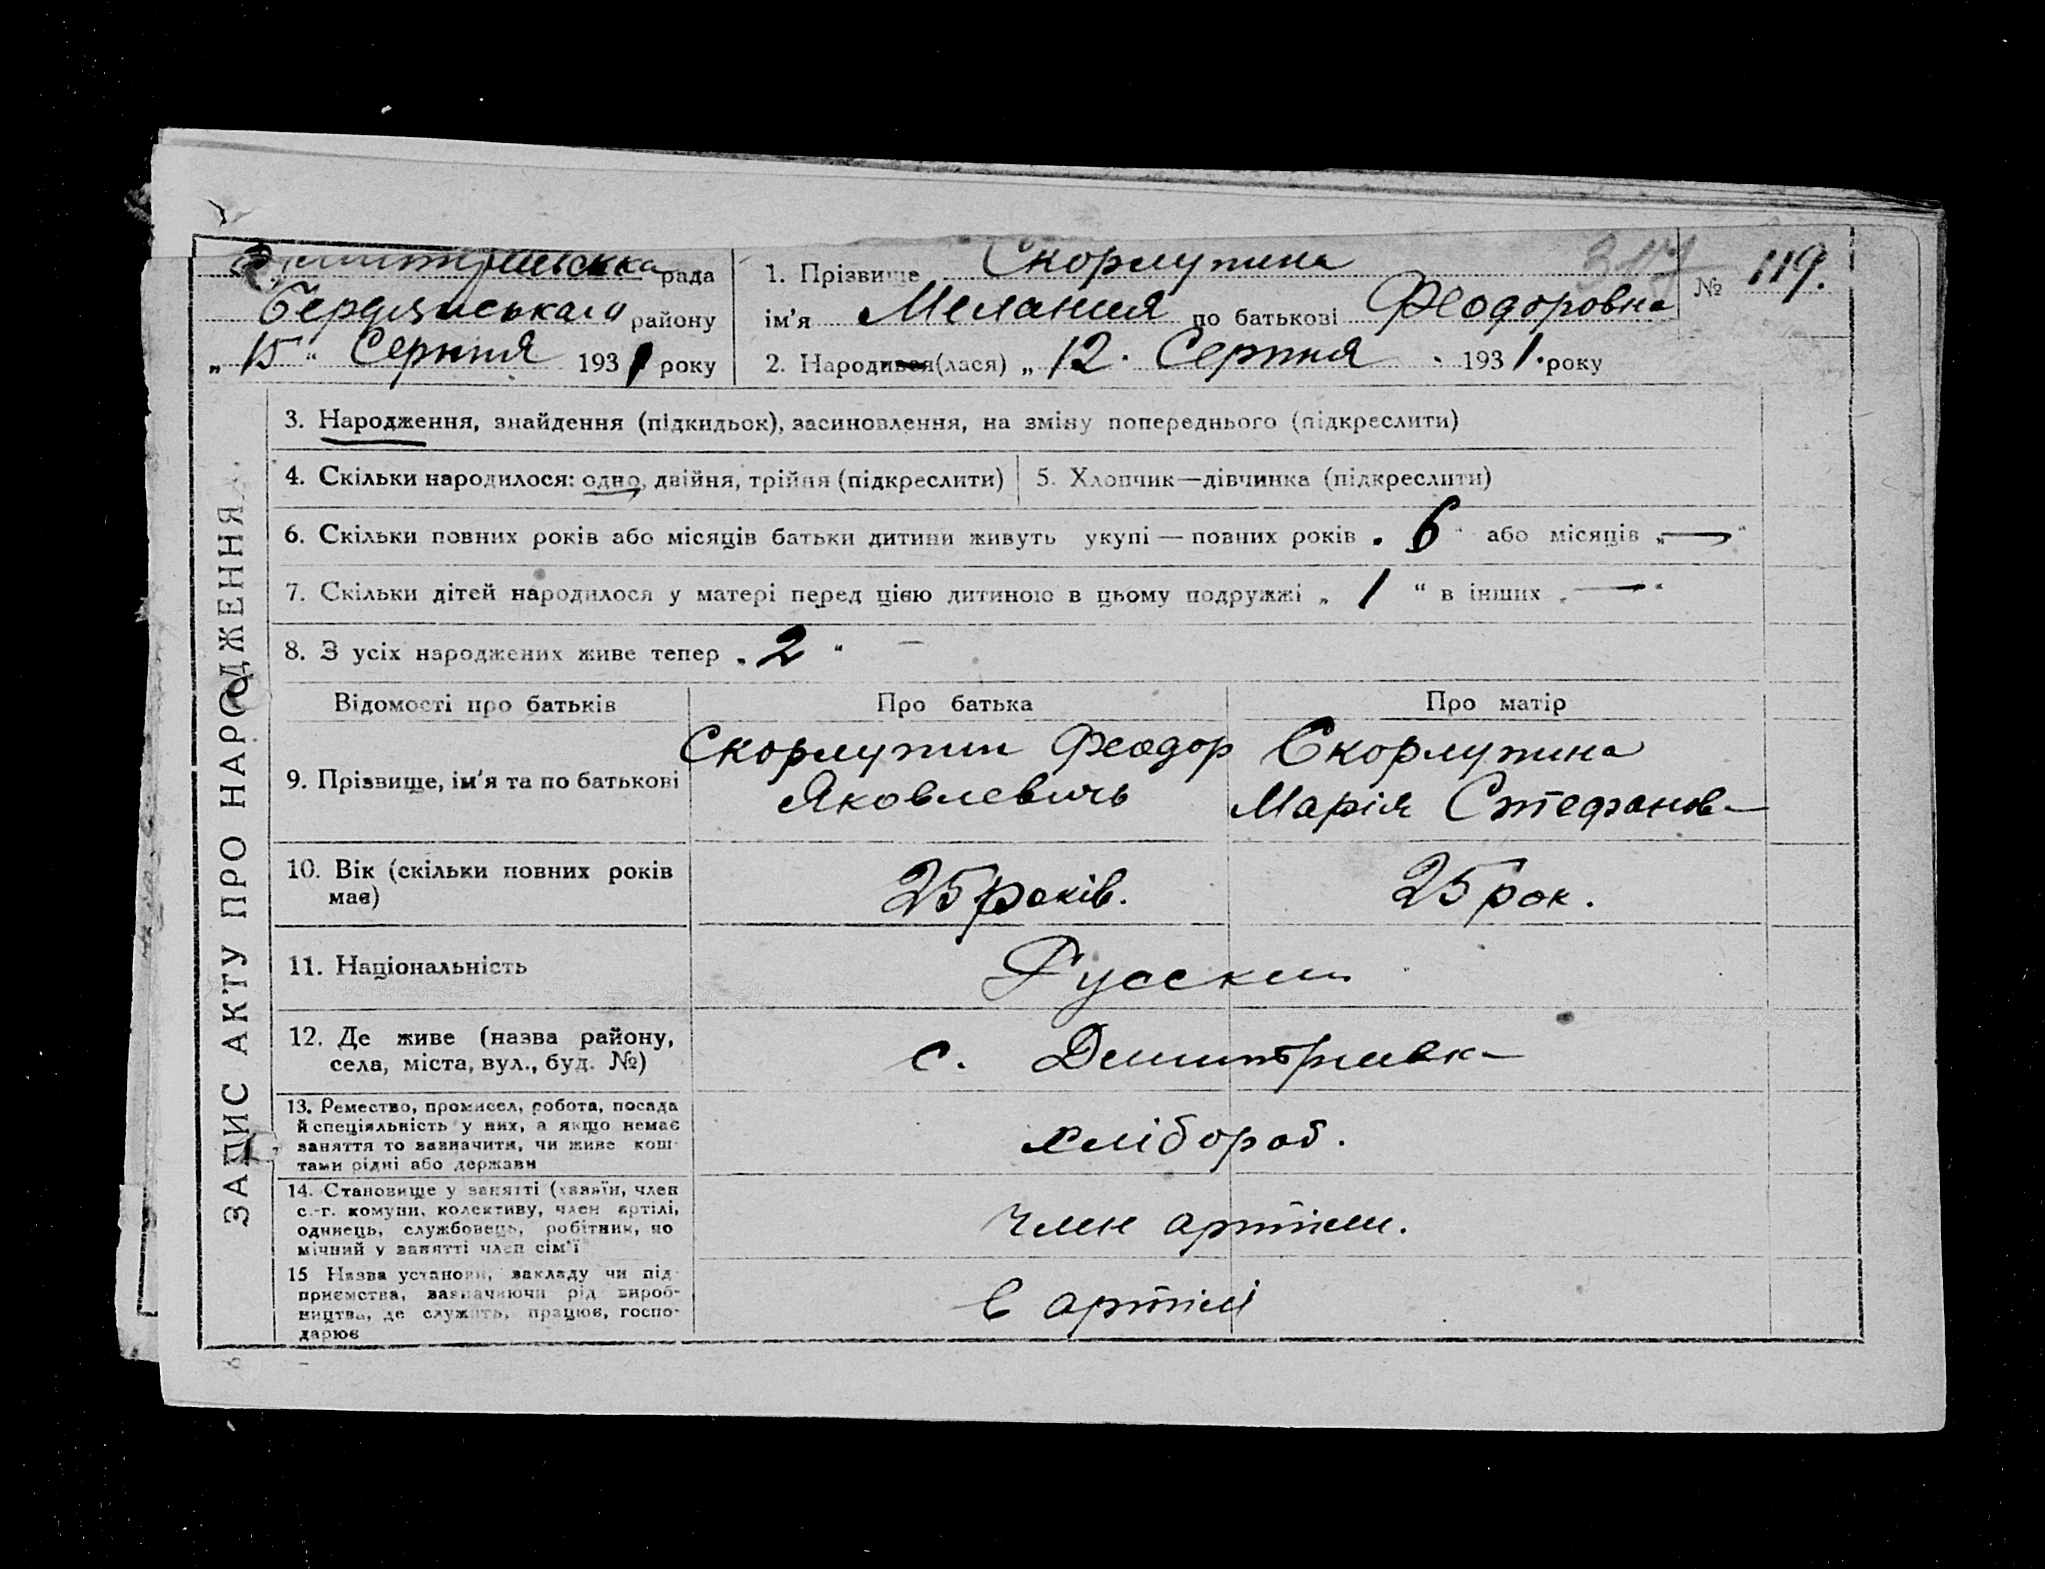 Димитриевська рада
Бердянського району
„ 15 “ Серпня 1931 року
1. Прізвище Скорлупина
317
№ 119.
ім'я Мелания по батькові Феодоровна
2. Народився(лася) „ 12. Серпня 1931. року
ЗАПИС АКТУ ПРО НАРОДЖЕННЯ
3. Народження, знайдення (підкидьок), засиновлення, на зміну попереднього (підкреслити)
4. Скільки народилося: одно, двійня, трійня (підкреслити)
5. Хлопчик—дівчинка (підкреслити)
6. Скільки повних років або місяців батьки дитини живуть укупі — повних років „ 6 “ або місяців „ — “
7. Скільки дітей народилося у матері перед цією дитиною в цьому подружжі „ 1 “ в інших „ — “
8. З усіх народжених живе тепер „ 2 “ —
Відомості про батьків
Про батька
Про матір
9. Прізвище, ім'я та по батькові
Скорлупин Феодор
Яковлевичь
Скорлупина
Марія Стефанов—
10. Вік (скільки повних років
має)
25 років.
25 рок.
11. Національність
Русский
12. Де живе (назва району,
села, міста, вул., буд. №)
с. Димитриевка
13. Ремество, промисел, робота, посада
й спеціяльність у них, а якщо немає
заняття то зазначити, чи живе кош-
тами рідні або держави
хлібороб.
14. Становище у занятті (хазяїн, член
с.-г. комуни, колективу, член артілі,
одинець, службовець, робітник, по-
мічний у занятті член сім'ї
член артіли.
15 Назва установи, закладу чи під-
приємства, зазначаючи рід вироб-
ництва, де служить, працює, госпо-
дарює
в артілі